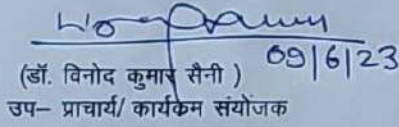 09/6/23
(डॉ. विनोद कुमार सैनी )
उप– प्राचार्य/ कार्यकम संयोजक